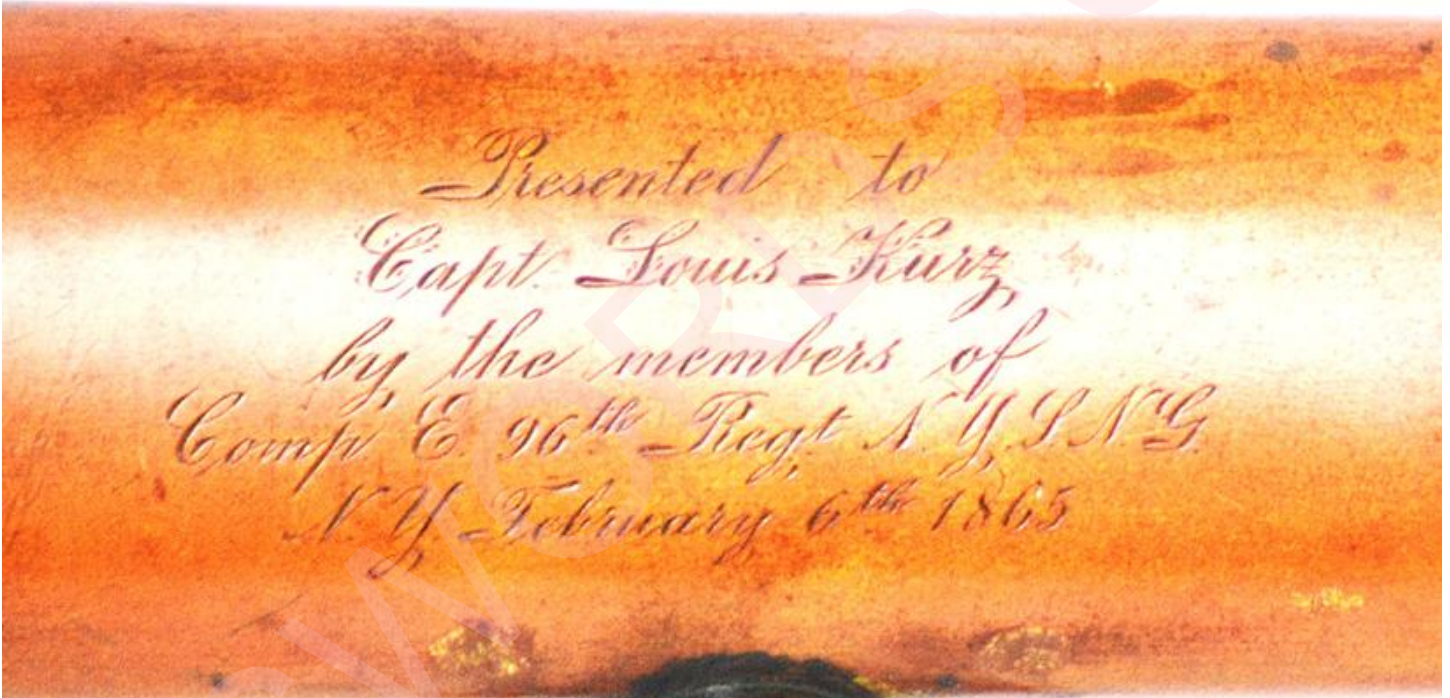 Presented to
Capt. Louis Kurz,
by the members of
Comp. E. 96th Regt N.Y.S.N.G.
N.Y. February 6th 1865